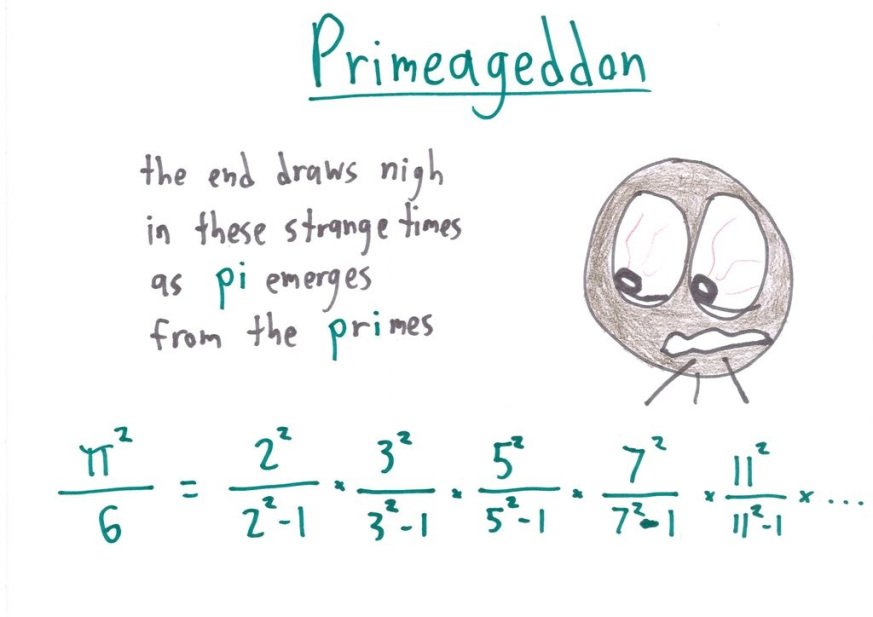 Primeageddon
the end draws nigh
in these strange times
as pi emerges
from the primes
π²/6 = 2²/2²-1 × 3²/3²-1 × 5²/5²-1 × 7²/7²-1 × 11²/11²-1 × ...